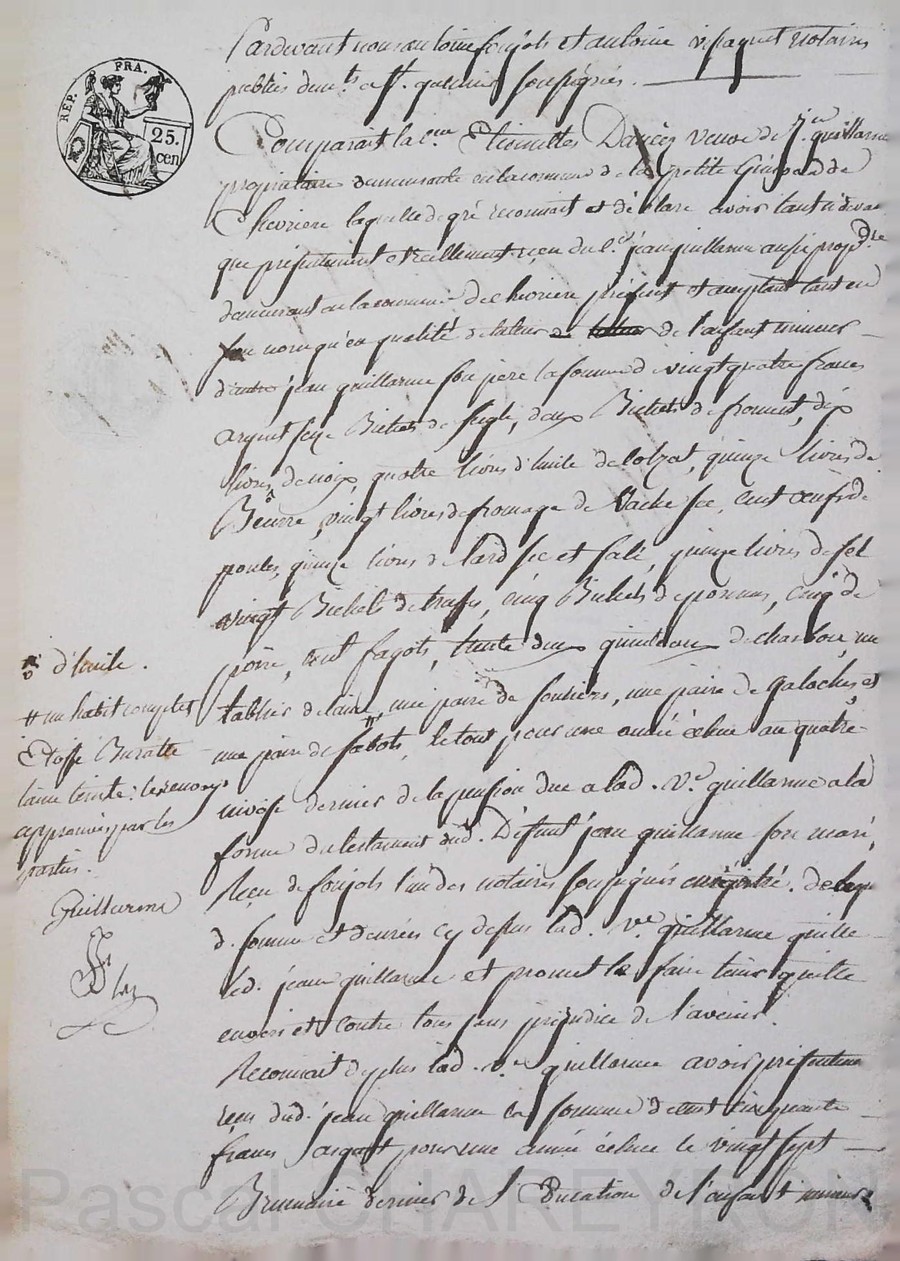 REP. FRA.
25.
cen
Pardevant nous antoine foujols et antoine notaires
publics soussignés.
Comparait la c.ne Veuve de j.n guillarme
propriétaire demeurante en la commune de la petite
Chevriere laquelle de gré reconnait et déclare avoir tant ci devant
que présentement et réellement reçu du c.en jean guillarme aussi prop.re
demeurant en la commune de chevriere présent et acceptant tant en
son nom qu'en qualité de tuteur de l'enfant mineur
d'autre jean guillarme son pere la somme de vingt quatre francs
argent seize Bichets de seigle, deux Bichets de froment, dix
livres de noix, quatre livres d'huile de colzat, quinze livres de
Beurre, vingt livres de fromage de vache sec, cent oeufs de
poules, quinze livres de lard sec et salé, quinze livres de sel
vingt Bichets de trufes, cinq Bichets de pommes, cinq de
poire, cent fagots, trente deux quintaux de charbon, un
tablier de laine, une paire de souliers, une paire de galoches, et
une paire de sabots, le tout pour une année échue au quatre
nivôse dernier de la pension due a lad. V.e guillarme a la
forme du testament dud. Défunt jean guillarme son mari,
Reçu de foujols l'un des notaires soussignés enregistré. de laque
d. somme et denrées cy dessus lad. V.e guillarme quitte
led. jean guillarme et promet le faire tenir quitte
envers et contre tous sans préjudice de l'avenir.
Reconnait de plus lad. v.e guillarme avoir présenteme
reçu dud. jean guillarme la somme de cent cinquante
francs argent pour une année échue le vingt sept
Brumaire dernier de l'Education de l'enfant mineur
d'huile.
# un habit complet
Etoffe Buratte
laine teinte: les renvoys
approuvés par les
parties.
Guillarme
Pascal CHAREYRON